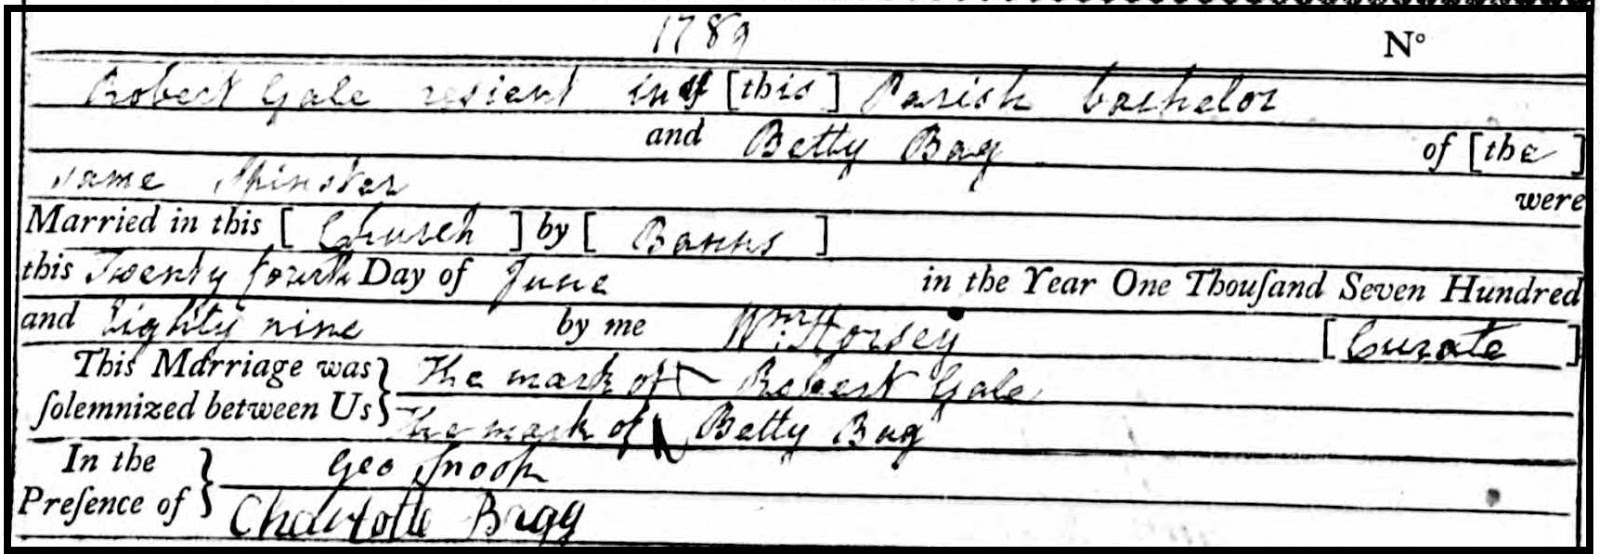 1789 Nº
Robert Gale resient in of [this] Parish bachelor
and Betty Bag of [the]
same Spinster were
Married in this [Church] by [Banns]
this Twenty fourth Day of June in the Year One Thouſand Seven Hundred
and Eighty nine by me Wm: Horsey [Curate]
This Marriage was } The mark of Robert Gale
ſolemnized between Us } The mark of Betty Bag
In the } Geo Snook
Preſence of } Charlotte Bragg